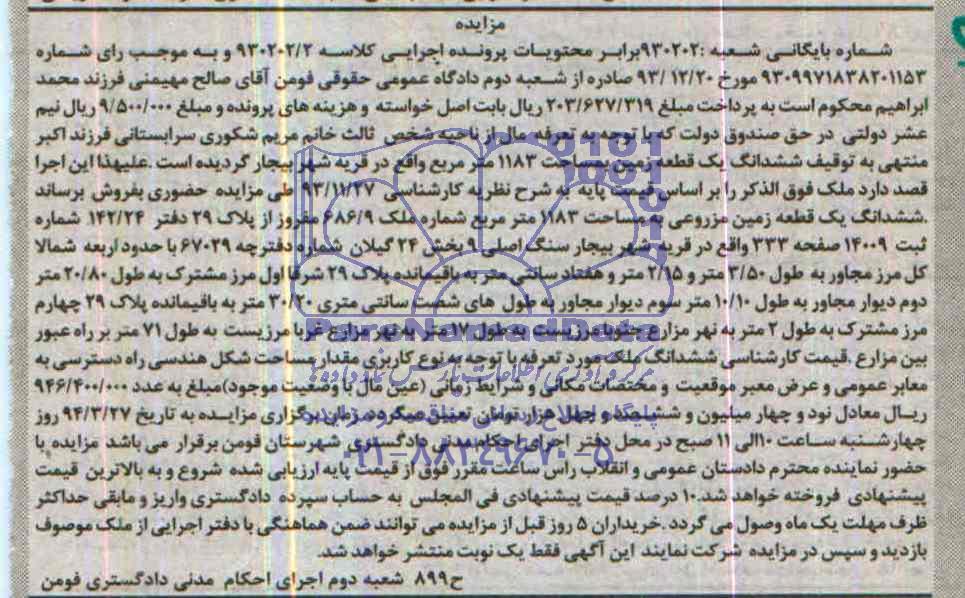 مزایده
شماره بایگانی شعبه :۹۳۰۲۰۲برابر محتویات پرونده اجرایی کلاسه ۹۳۰۲۰۲/۲ و به موجب رای شماره
۹۳۰۹۹۷۱۸۳۸۲۰۱۱۵۳ مورخ ۹۳/۱۲/۲۰ صادره از شعبه دوم دادگاه عمومی حقوقی فومن آقای صالح مهیمنی فرزند محمد
ابراهیم محکوم است به پرداخت مبلغ ۲۰۳/۶۲۷/۳۱۹ ریال بابت اصل خواسته و هزینه های پرونده و مبلغ ۹/۵۰۰/۰۰۰ ریال نیم
عشر دولتی در حق صندوق دولت که با توجه به تعرفه مال از ناحیه شخص ثالث خانم مریم شکوری سرابستانی فرزند اکبر
منتهی به توقیف ششدانگ یک قطعه زمین بمساحت ۱۱۸۳ متر مربع واقع در قریه شهر بیجار گردیده است .علیهذا این اجرا
قصد دارد ملک فوق الذکر را بر اساس قیمت پایه به شرح نظریه کارشناسی ۹۳/۱۱/۲۷ طی مزایده حضوری بفروش برساند
.ششدانگ یک قطعه زمین مزروعی به مساحت ۱۱۸۳ متر مربع شماره ملک ۶۸۶/۹ مفروز از پلاک ۲۹ دفتر ۱۴۲/۲۴ شماره
ثبت ۱۴۰۰۹ صفحه ۳۳۳ واقع در قریه شهر بیجار سنگ اصلی ۹ بخش ۲۴ گیلان شماره دفترچه ۶۷۰۲۹ با حدود اربعه شمالا
کل مرز مجاور به طول ۳/۵۰ متر و ۲/۱۵ متر و هفتاد سانتی متر به باقیمانده پلاک ۲۹ شرقا اول مرز مشترک به طول ۲۰/۸۰ متر
دوم دیوار مجاور به طول ۱۰/۱۰ متر سوم دیوار مجاور به طول های شصت سانتی متری ۳۰/۲۰ متر به باقیمانده پلاک ۲۹ چهارم
مرز مشترک به طول ۲ متر به نهر مزارع جنوبا مرزیست به طول ۱۷ متر به نهر مزارع غربا مرزیست به طول ۷۱ متر بر راه عبور
بین مزارع .قیمت کارشناسی ششدانگ ملک مورد تعرفه با توجه به نوع کاربری مقدار مساحت شکل هندسی راه دسترسی به
معابر عمومی و عرض معبر موقعیت و مختصات مکانی و شرایط زمانی (عین مال با وضعیت موجود)مبلغ به عدد ۹۴۶/۴۰۰/۰۰۰
ریال معادل نود و چهار میلیون و ششصد و چهل هزار تومان تعیین میگردد.زمان برگزاری مزایده به تاریخ ۹۴/۳/۲۷ روز
چهارشنبه ساعت ۱۰الی ۱۱ صبح در محل دفتر اجرای احکام مدنی دادگستری شهرستان فومن برقرار می باشد مزایده با
حضور نماینده محترم دادستان عمومی و انقلاب راس ساعت مقرر فوق از قیمت پایه ارزیابی شده شروع و به بالاترین قیمت
پیشنهادی فروخته خواهد شد.۱۰ درصد قیمت پیشنهادی فی المجلس به حساب سپرده دادگستری واریز و مابقی حداکثر
ظرف مهلت یک ماه وصول می گردد .خریداران ۵ روز قبل از مزایده می توانند ضمن هماهنگی با دفتر اجرایی از ملک موصوف
بازدید و سپس در مزایده شرکت نمایند این آگهی فقط یک نوبت منتشر خواهد شد.
ح۸۹۹ شعبه دوم اجرای احکام مدنی دادگستری فومن
ParsNamadData
۰۲۱-۸۸۳۴۹۶۷۰-۵